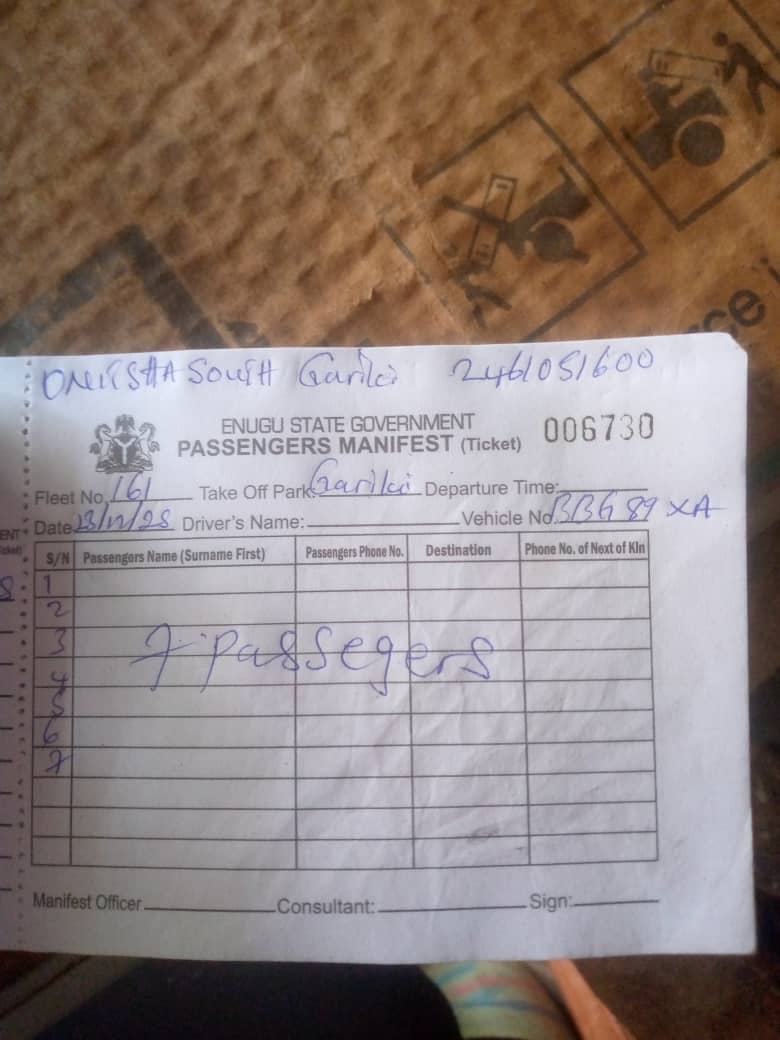 ONITSHA SOUTH Gariki 2461051600
ENUGU STATE GOVERNMENT
PASSENGERS MANIFEST (Ticket) 006730
Fleet No. 161 Take Off Park: Gariki Departure Time:
Date 23/12/25 Driver's Name: Vehicle No. BBG 89 XA
S/N Passengers Name (Surname First) Passengers Phone No. Destination Phone No. of Next of Kin
1
2
3
7 passegers
4
5
6
7
Manifest Officer Consultant: Sign: